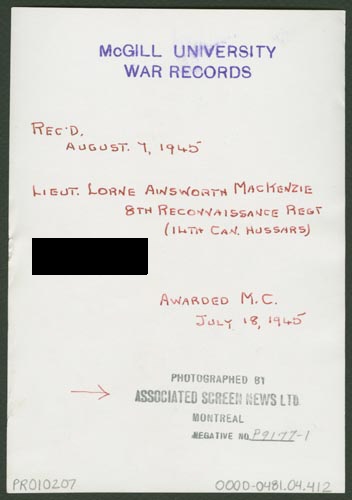 McGILL UNIVERSITY
WAR RECORDS
REC'D.
AUGUST. 7, 1945
LIEUT. LORNE AINSWORTH MACKENZIE
8TH RECONNAISSANCE REGT
(14TH CAN. HUSSARS)
AWARDED M.C.
JULY 18, 1945
PHOTOGRAPHED BY
ASSOCIATED SCREEN NEWS LTD.
MONTREAL
NEGATIVE NO. P9177-1
PR010207
0000-0481.04.412